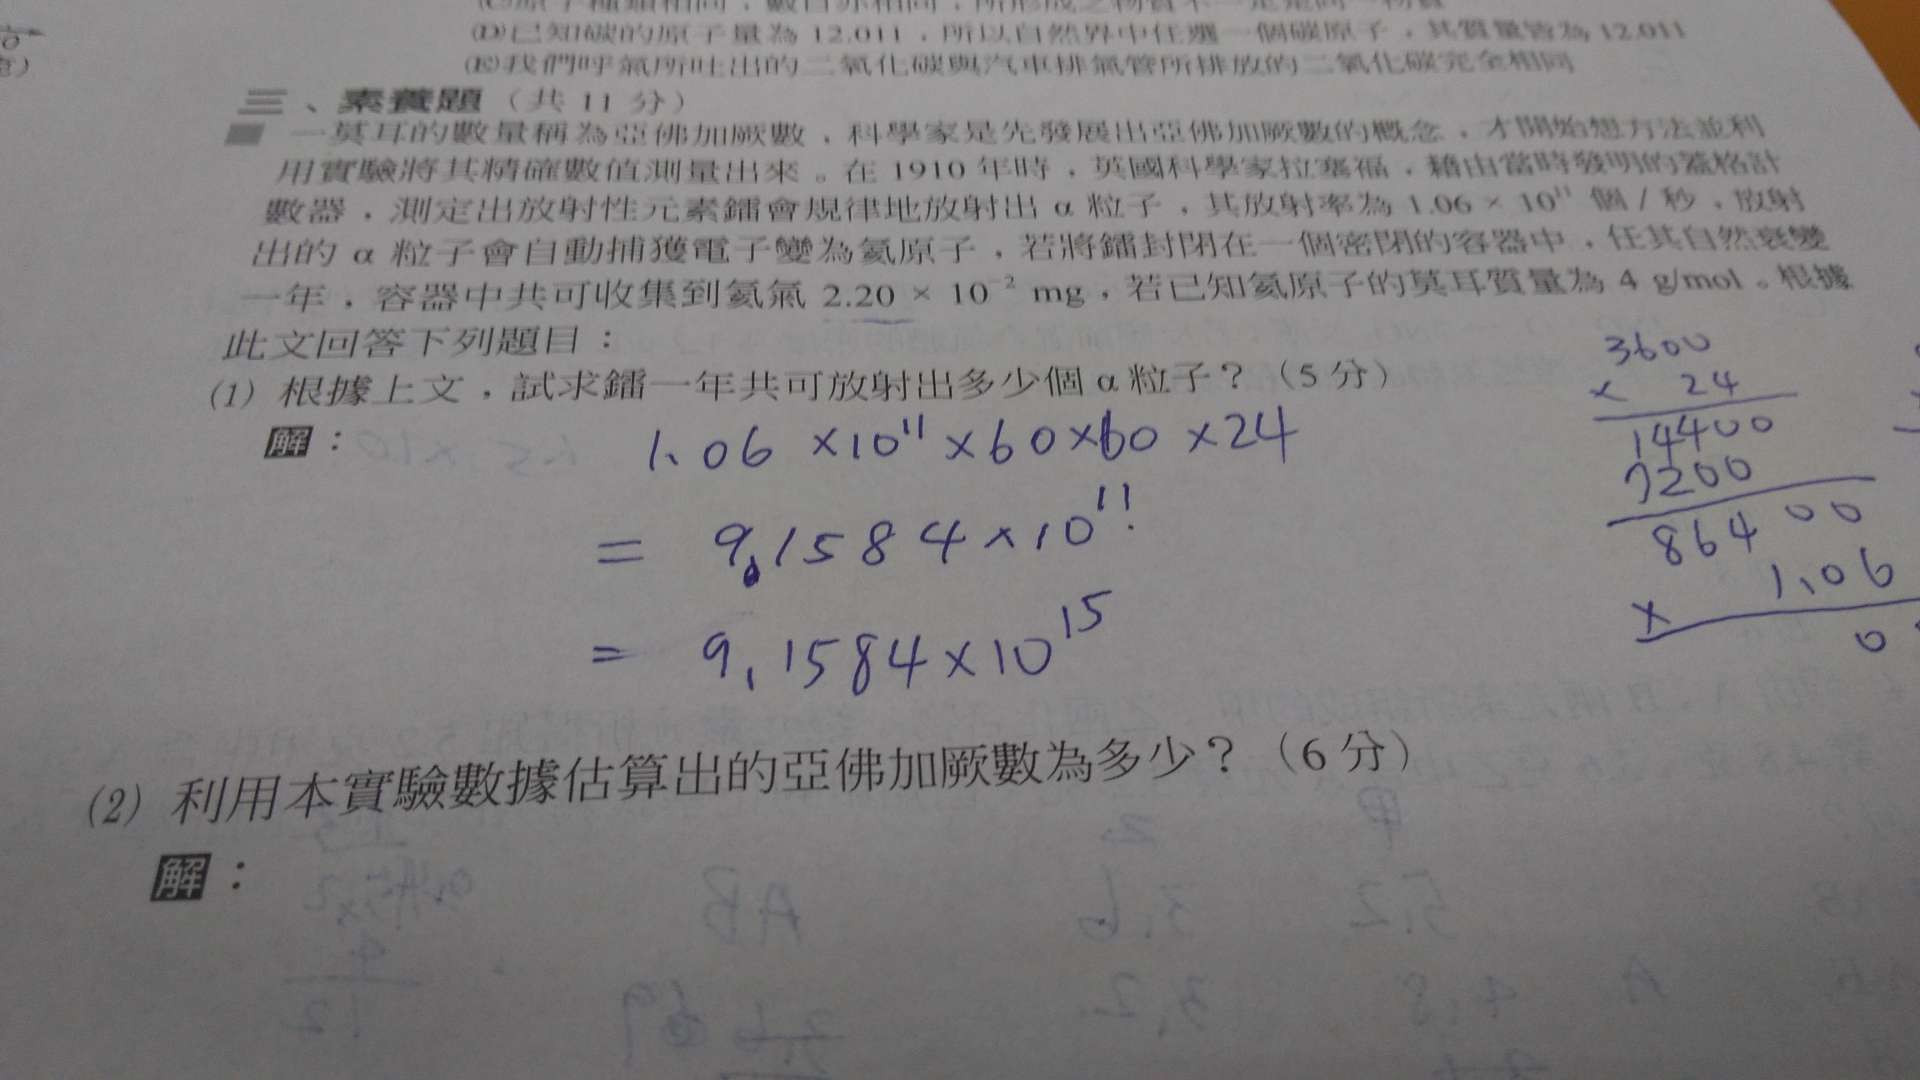 (C)原子種類相同，數目亦相同，所形成之物質不一定是同一物質
(D)已知碳的原子量為 12.011，所以自然界中任選一個碳原子，其質量皆為 12.011
(E)我們呼氣所吐出的二氧化碳與汽車排氣管所排放的二氧化碳完全相同
三、素養題（共 11 分）
一莫耳的數量稱為亞佛加厥數，科學家是先發展出亞佛加厥數的概念，才開始想方法並利
用實驗將其精確數值測量出來。在 1910 年時，英國科學家拉塞福，藉由當時發明的蓋格計
數器，測定出放射性元素鐳會規律地放射出 α 粒子，其放射率為 1.06 × 10¹¹ 個 / 秒，放射
出的 α 粒子會自動捕獲電子變為氦原子，若將鐳封閉在一個密閉的容器中，任其自然衰變
一年，容器中共可收集到氦氣 2.20 × 10⁻² mg，若已知氦原子的莫耳質量為 4 g/mol。根據
此文回答下列題目：
(1) 根據上文，試求鐳一年共可放射出多少個 α 粒子？（5 分）
解：
1.06 ×10¹¹ ×60×60 ×24
= 9.1584×10¹¹
= 9.1584×10¹⁵
3600
× 24
14400
7200
86400
1.06
×
0
(2) 利用本實驗數據估算出的亞佛加厥數為多少？（6 分）
解：